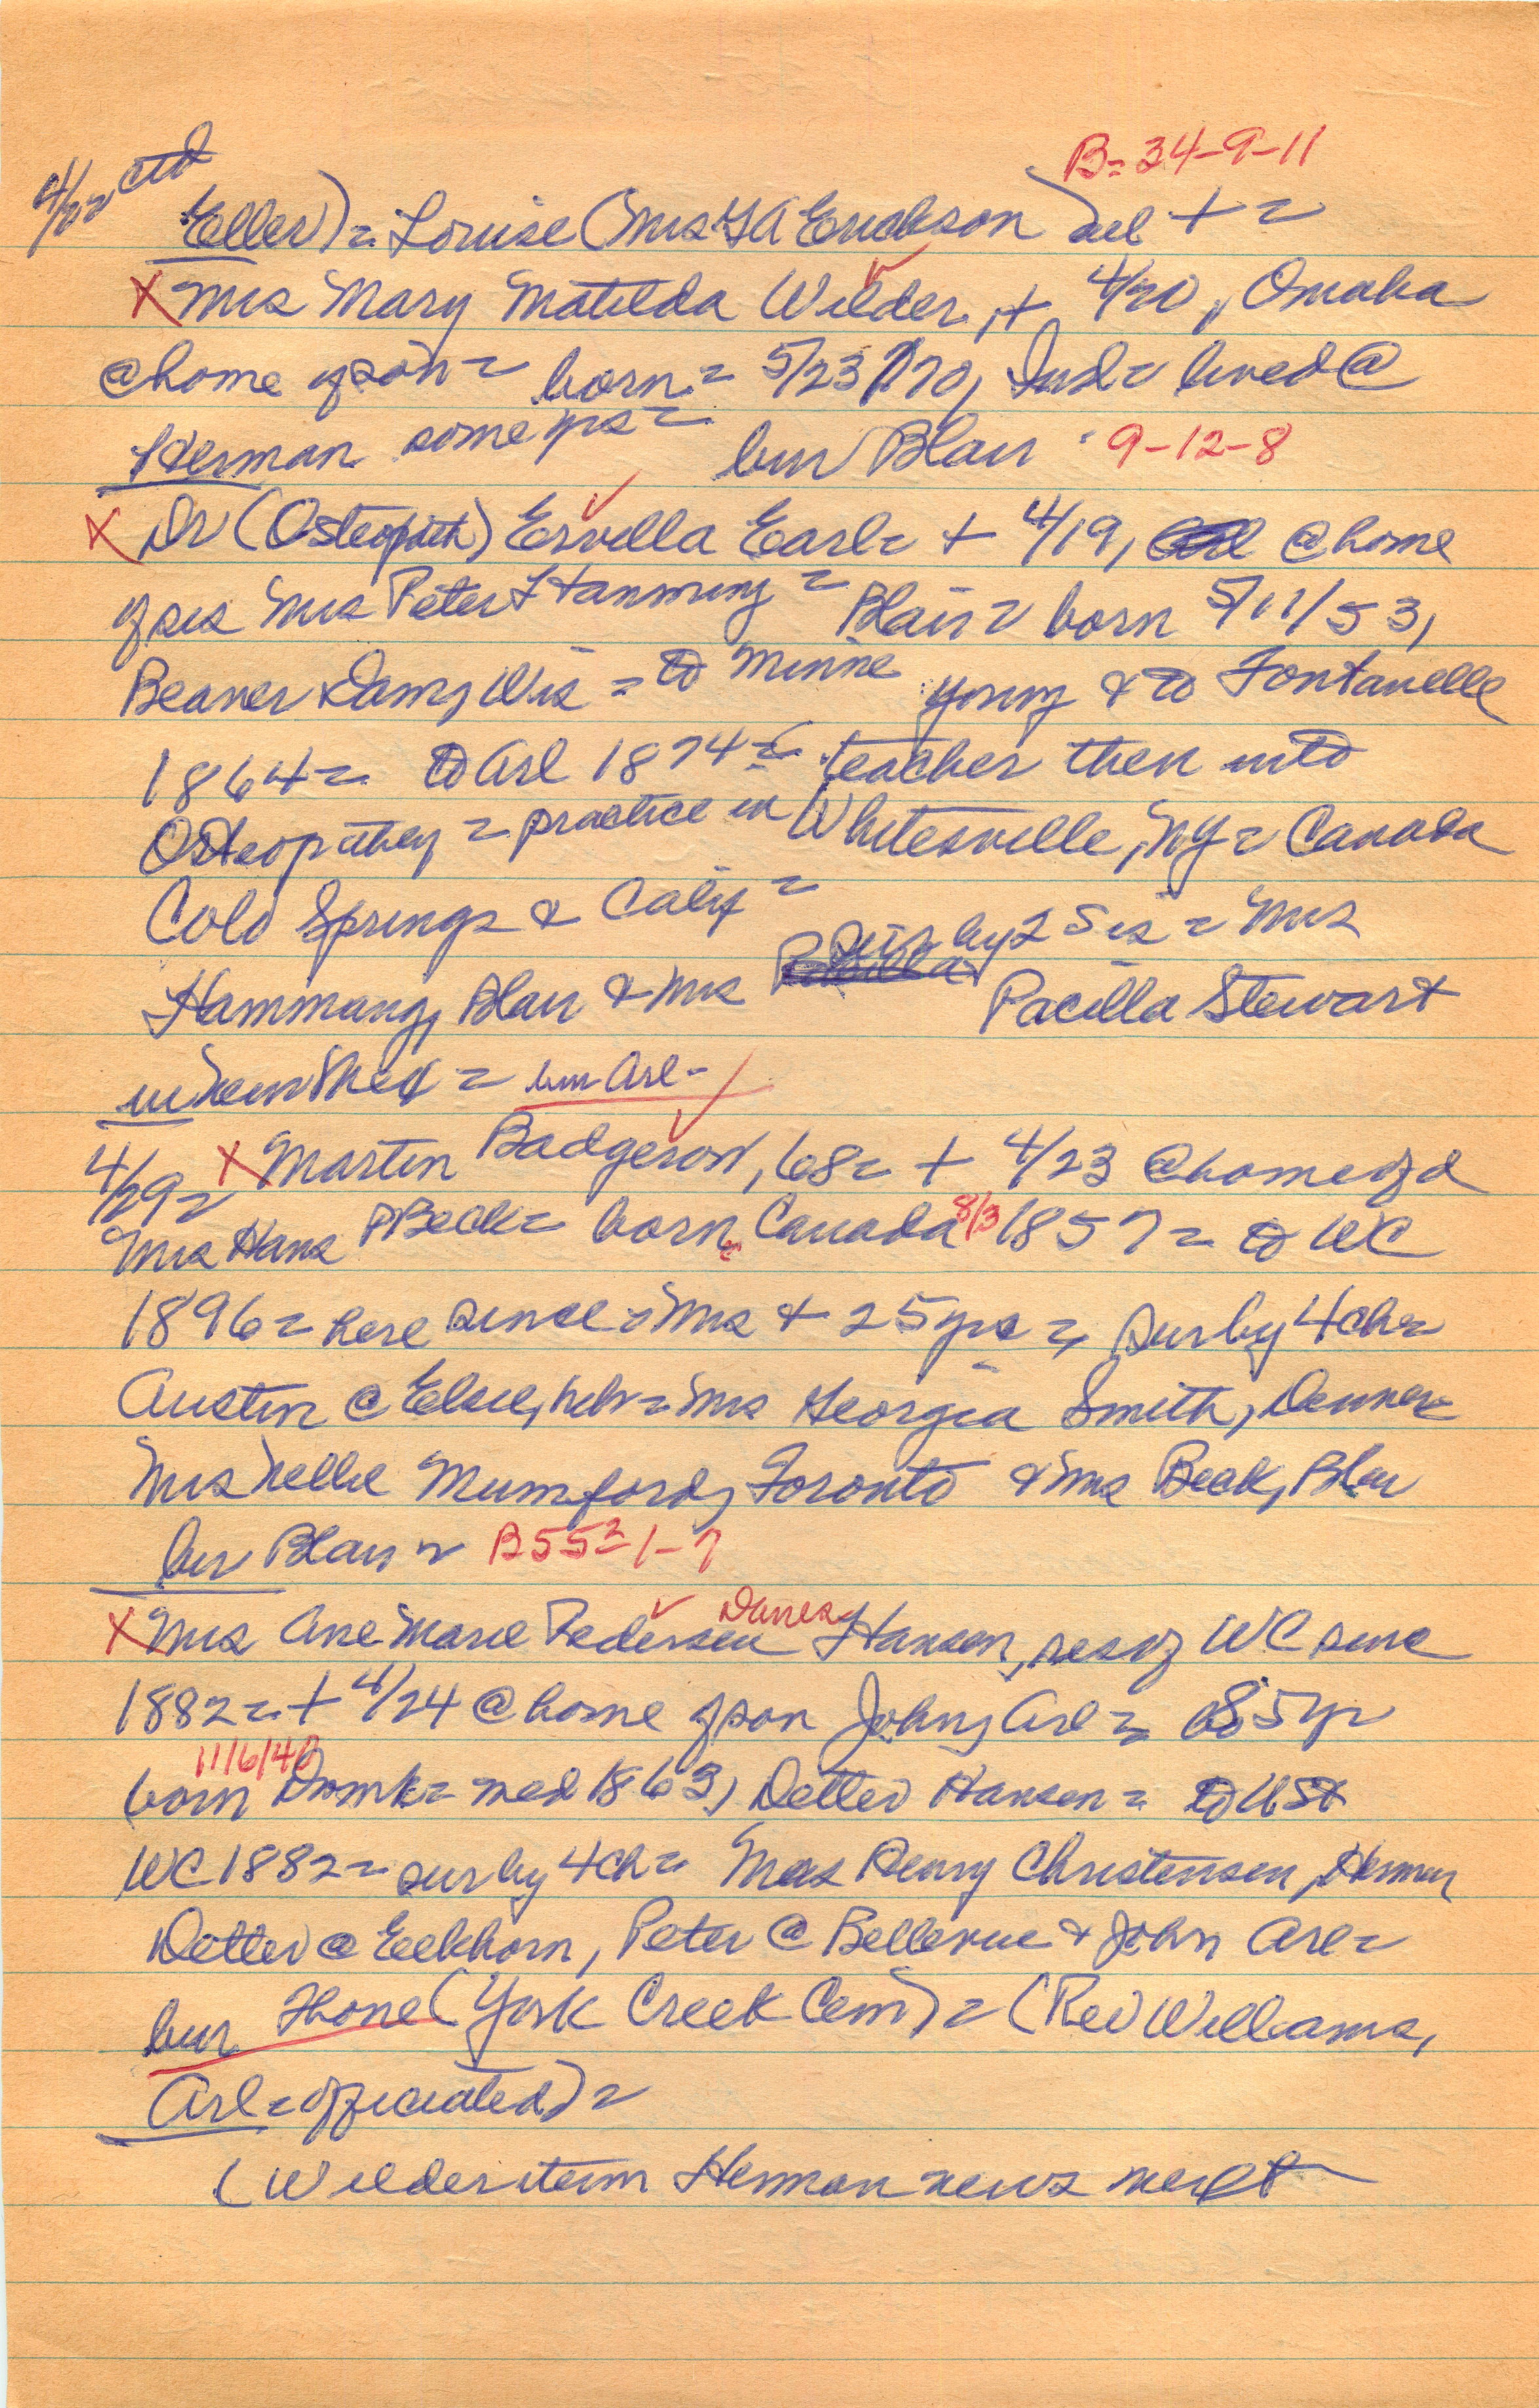 B= 34-9-11
4/22 ctd
Eller) = Louise (Mrs GA Erickson) all + =
X Mrs Mary Matilda Wilder, + 4/20, Omaha
@ home of son = born = 5/23/70, Ind = lived @
Herman some yrs = bur Blair 9-12-8
X Dr (Osteopath) Ervilla Earl = + 4/19, @ home
of sis Mrs Peter Hammang = Blair = born 5/11/53,
Beaver Dam, Wis = to Minne young & to Fontanelle
1864 = to Arl 1874 = teacher then into
Osteopathy = practice in Whitesville, NY = Canada
Cold Springs & Calif = sur by 2 sis = Mrs
Hammang, Blair & Mrs Pacilla Stewart
in = bur Arl -
4/29 = X Martin Badgerow, 68 = + 4/23 @ home of d
Mrs Hans P Beck = born Canada 8/3 1857 = to WC
1896 = here since = Mrs + 25 yrs = sur by 4 ch =
Austin @ Elsie, Neb = Mrs Georgia Smith, Denver =
Mrs Nellie Mumford, Toronto & Mrs Beck, Blair
bur Blair = B 55 = 1-7
Danes
X Mrs Ane Marie Pedersen Hansen, res of WC since
1882 = + 4/24 @ home of son John, Arl = 85 yr
11/6/40
born Dnmk = med 1863, Detlev Hansen = to USA
WC 1882 = sur by 4 ch = Mrs Henry Christensen, Herman
Detlev @ Elkhorn, Peter @ Bellevue & John Arl =
bur Thone (York Creek Cem) = (Rev Williams,
Arl = officiated) =
(Wilder item Herman news next